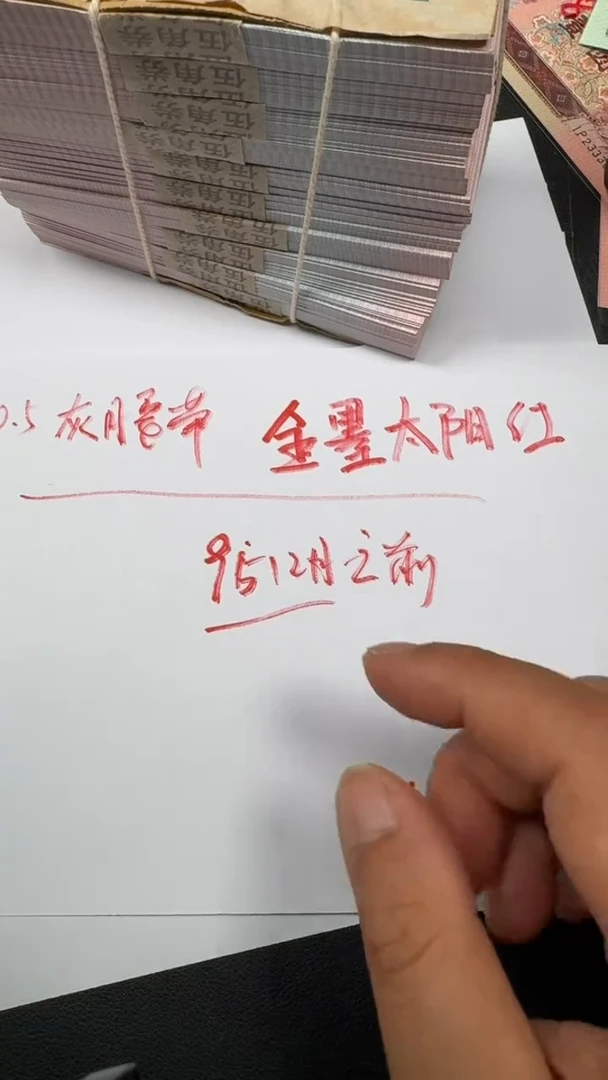 伍角券
伍角券
伍角券
伍角券
伍角券
伍角券
伍角券
伍角券
伍角券
伍角券
IP2333
0.5 灰 金墨太阳红
95 12月之前